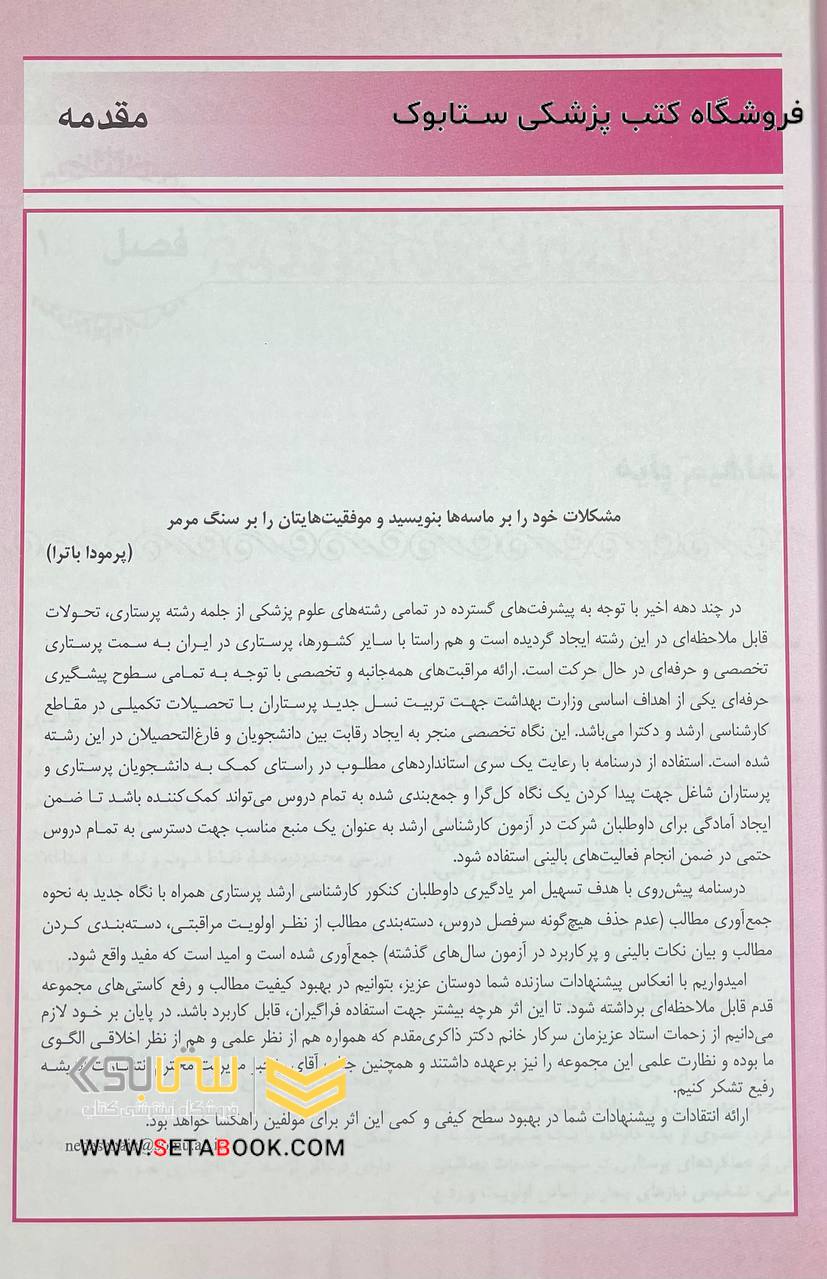 فروشگاه کتب پزشکی ستابوک
مقدمه
فصل ۱
مشکلات خود را بر ماسه‌ها بنویسید و موفقیت‌هایتان را بر سنگ مرمر
(پرمودا باترا)
در چند دهه اخیر با توجه به پیشرفت‌های گسترده در تمامی رشته‌های علوم پزشکی از جلمه رشته پرستاری، تحولات
قابل ملاحظه‌ای در این رشته ایجاد گردیده است و هم راستا با سایر کشورها، پرستاری در ایران به سمت پرستاری
تخصصی و حرفه‌ای در حال حرکت است. ارائه مراقبت‌های همه‌جانبه و تخصصی با توجه به تمامی سطوح پیشگیری
حرفه‌ای یکی از اهداف اساسی وزارت بهداشت جهت تربیت نسل جدید پرستاران با تحصیلات تکمیلی در مقاطع
کارشناسی ارشد و دکترا می‌باشد. این نگاه تخصصی منجر به ایجاد رقابت بین دانشجویان و فارغ‌التحصیلان در این رشته
شده است. استفاده از درسنامه با رعایت یک سری استانداردهای مطلوب در راستای کمک به دانشجویان پرستاری و
پرستاران شاغل جهت پیدا کردن یک نگاه کل‌گرا و جمع‌بندی شده به تمام دروس می‌تواند کمک‌کننده باشد تا ضمن
ایجاد آمادگی برای داوطلبان شرکت در آزمون کارشناسی ارشد به عنوان یک منبع مناسب جهت دسترسی به تمام دروس
حتمی در ضمن انجام فعالیت‌های بالینی استفاده شود.
درسنامه پیش‌روی با هدف تسهیل امر یادگیری داوطلبان کنکور کارشناسی ارشد پرستاری همراه با نگاه جدید به نحوه
جمع‌آوری مطالب (عدم حذف هیچ‌گونه سرفصل دروس، دسته‌بندی مطالب از نظر اولویت مراقبتی، دسته‌بندی کردن
مطالب و بیان نکات بالینی و پرکاربرد در آزمون سال‌های گذشته) جمع‌آوری شده است و امید است که مفید واقع شود.
امیدواریم با انعکاس پیشنهادات سازنده شما دوستان عزیز، بتوانیم در بهبود کیفیت مطالب و رفع کاستی‌های مجموعه
قدم قابل ملاحظه‌ای برداشته شود. تا این اثر هرچه بیشتر جهت استفاده فراگیران، قابل کاربرد باشد. در پایان بر خود لازم
می‌دانیم از زحمات استاد عزیزمان سرکار خانم دکتر ذاکری‌مقدم که همواره هم از نظر علمی و هم از نظر اخلاقی الگوی
ما بوده و نظارت علمی این مجموعه را نیز برعهده داشتند و همچنین آقای مدیریت
رفیع تشکر کنیم.
ارائه انتقادات و پیشنهادات شما در بهبود سطح کیفی و کمی این اثر برای مولفین راهگشا خواهد بود.
ستابوک
فروشگاه اینترنتی کتاب
WWW.SETABOOK.COM